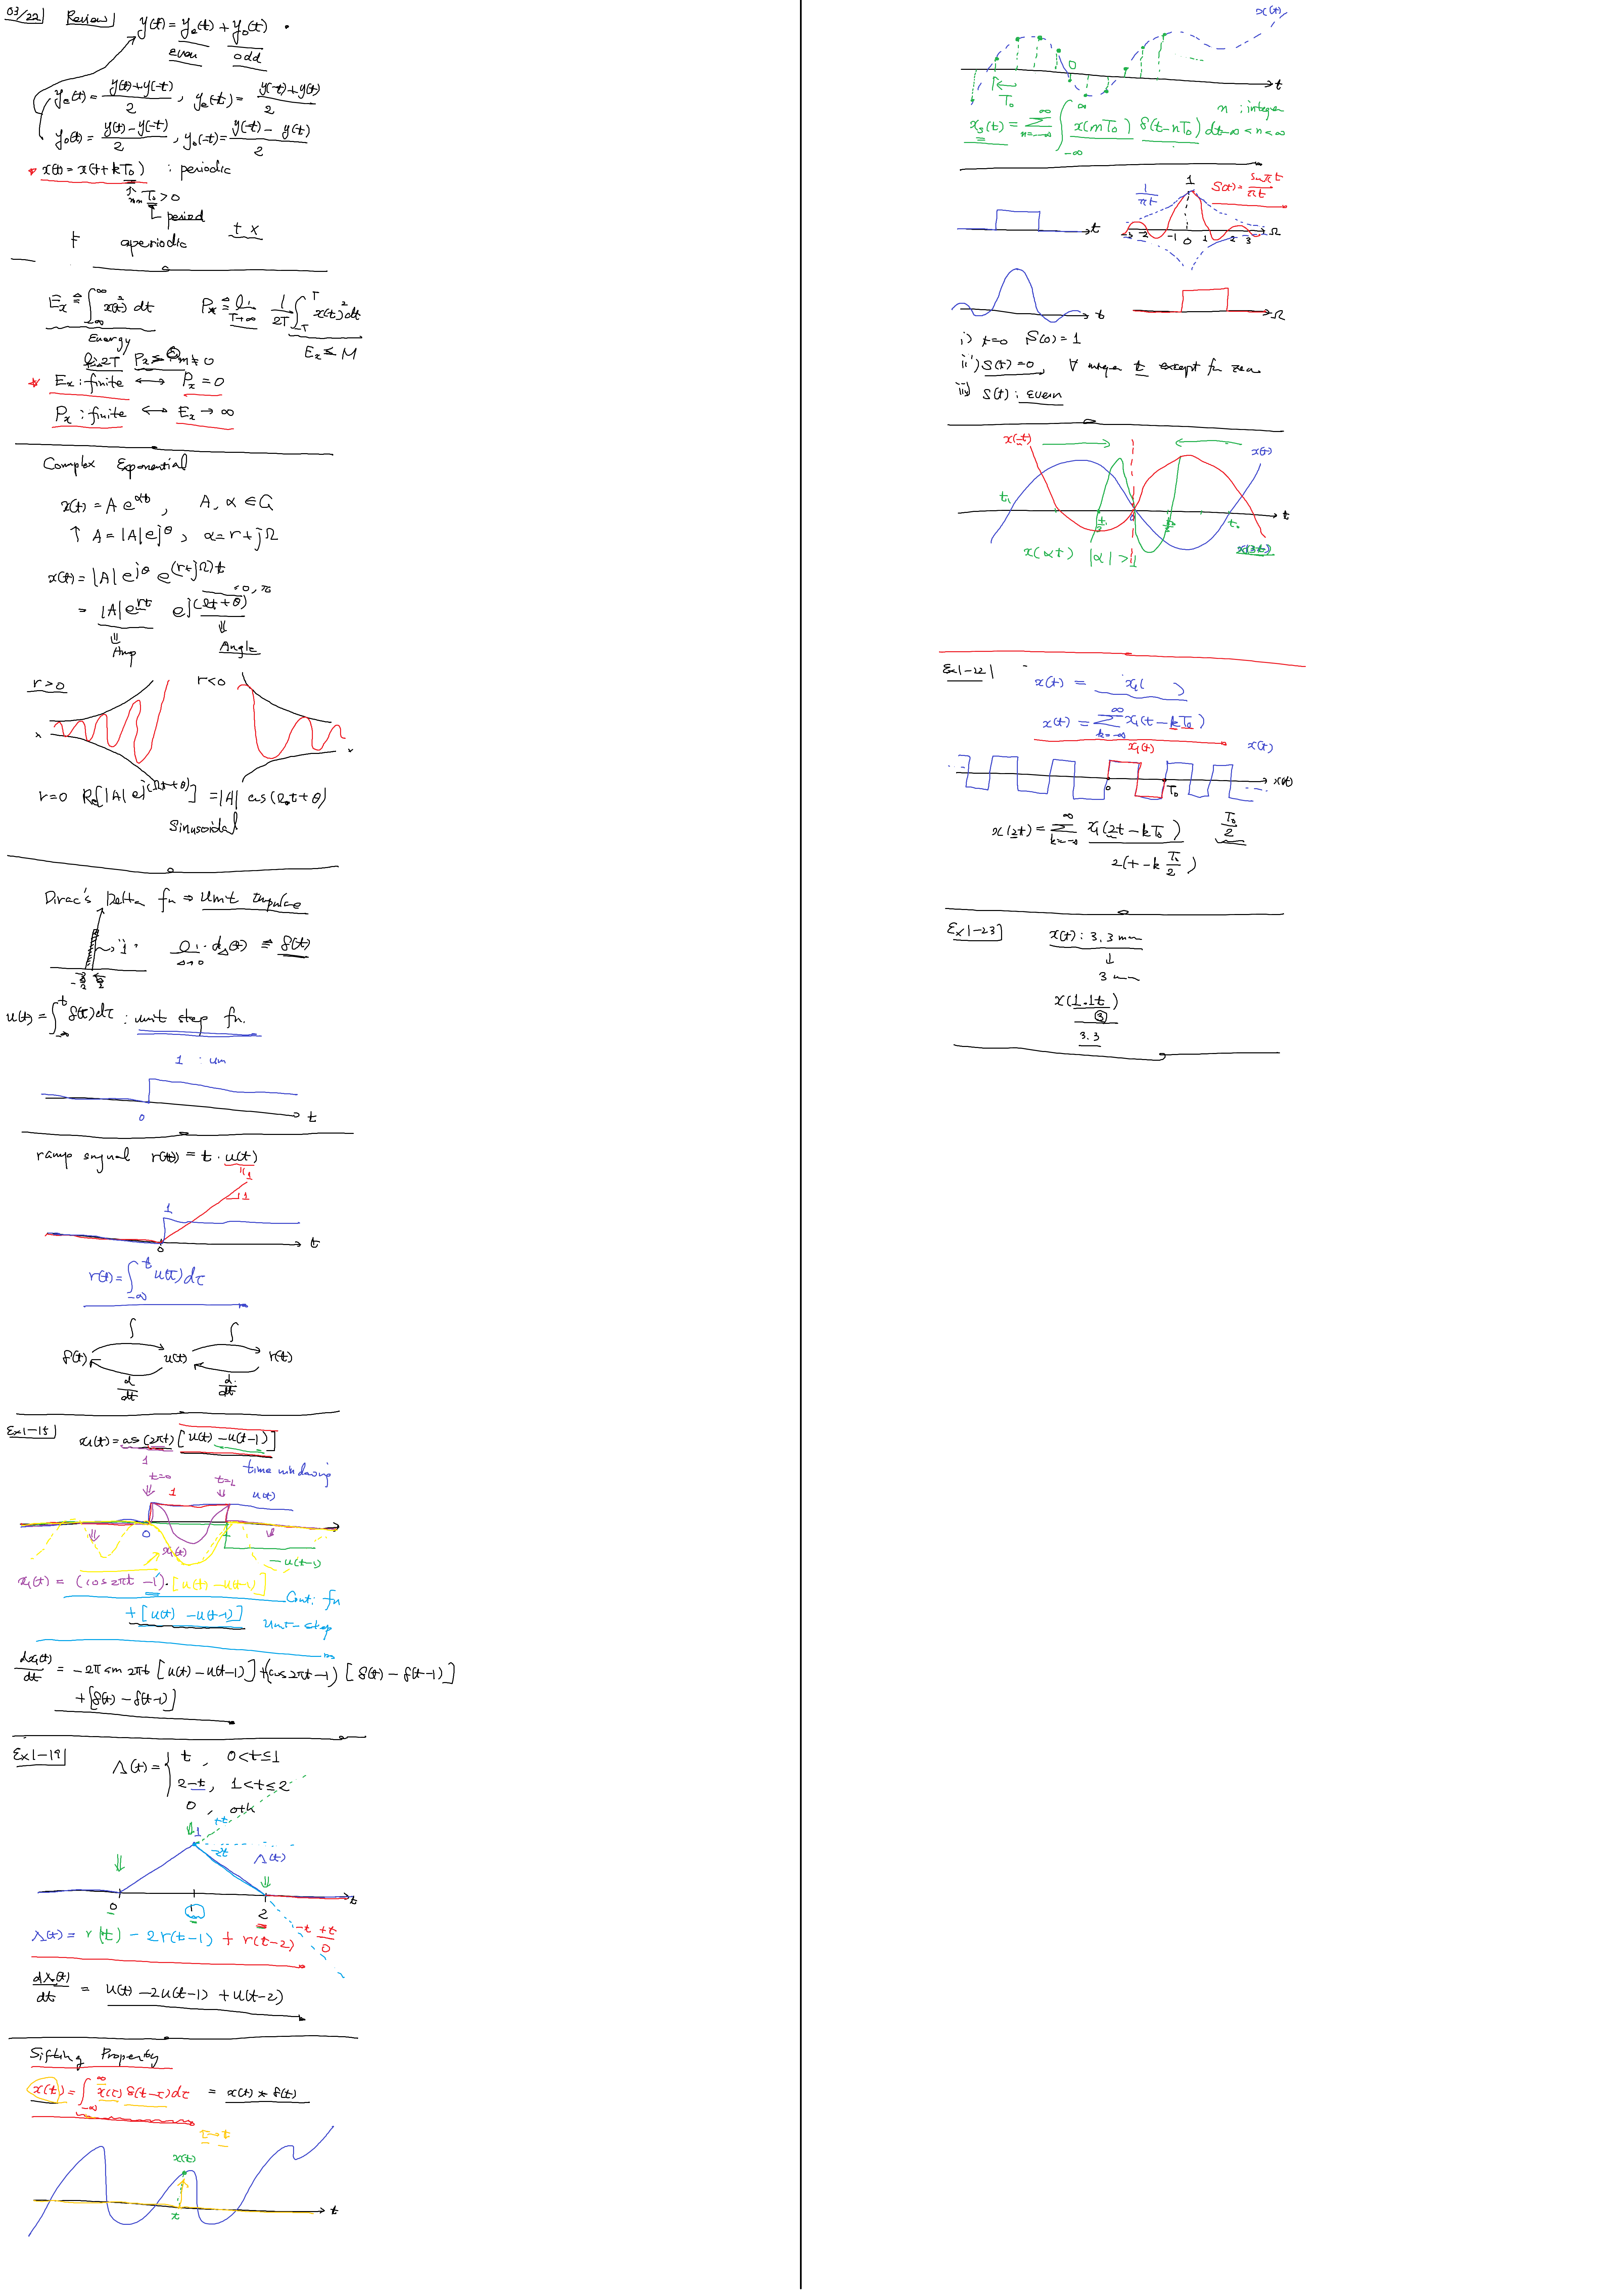 03/22 Review
y(t) = yₑ(t) + y₀(t)
even odd
yₑ(t) = (y(t)+y(-t))/2 , yₑ(-t) = (y(-t)+y(t))/2
y₀(t) = (y(t)-y(-t))/2 , y₀(-t) = (y(-t)-y(t))/2
x(t) = x(t+kT₀) : periodic
T₀ > 0
period
t x
aperiodic
Eₓ ≜ ∫_{-∞}^{∞} x(t)² dt Pₓ ≜ li_{T→∞} 1/2T ∫_{-T}^{T} x(t)² dt
Energy
Eₓ ≤ M
Eₓ : finite ↔ Pₓ = 0
Pₓ : finite ↔ Eₓ → ∞
Complex Exponential
x(t) = A e^{αt} , A, α ∈ C
↑ A = |A| e^{jθ} , α = r + jΩ
x(t) = |A| e^{jθ} e^{(r+jΩ)t}
= |A| e^{rt} e^{j(Ωt+θ)}
Amp Angle
r > 0 r < 0
r=0 Re[|A| e^{j(Ωt+θ)}] = |A| cos(Ω₀t+θ)
Sinusoidal
Dirac's Delta fn ⇒ Unit Impulse
"1" li_{Δ→0} d_Δ(t) = δ(t)
-Δ/2 Δ/2
u(t) = ∫_{-∞}^{t} δ(τ)dτ : unit step fn.
1 : um
0 t
ramp signal r(t) = t · u(t)
1
1
0 t
r(t) = ∫_{-∞}^{t} u(τ)dτ
∫ ∫
δ(t) u(t) r(t)
d/dt d/dt
Ex1-15
x₁(t) = cos(2πt) [u(t) - u(t-1)]
1
time windowing
t=0 t=1
1 u(t)
0 x₁(t)
-u(t-1)
x₁(t) = (cos2πt - 1)·[u(t) - u(t-1)]
Cont. fn
+ [u(t) - u(t-1)] unit-step
dx₁(t)/dt = -2π sin 2πt [u(t) - u(t-1)] + (cos2πt-1) [δ(t) - δ(t-1)]
+ [δ(t) - δ(t-1)]
Ex1-19
Λ(t) = { t , 0<t≤1
2-t , 1<t≤2
0 , oth
1 +t
-2t Λ(t)
0 1 2 t
-t +t
0
Λ(t) = r(t) - 2r(t-1) + r(t-2)
dΛ(t)/dt = u(t) - 2u(t-1) + u(t-2)
Sifting Property
x(t) = ∫_{-∞}^{∞} x(τ) δ(t-τ)dτ = x(t) * δ(t)
τ→t
x(t)
t t
x(t)
0
T₀ t
n : integer
xₛ(t) = Σ_{n=-∞}^{∞} ∫_{-∞}^{∞} x(nT₀) δ(t-nT₀) dt -∞ < n < ∞
1/πt 1 S(t) = sinπt/πt
t -3 -2 -1 0 1 2 3 Ω
t Ω
i) t=0 S(0) = 1
ii) S(t) = 0 , ∀ integer t except for zero
iii) S(t) : even
x(-t) x(t)
t₁ t₁/2 0 t₀/2 t₀ t
x(αt) |α| > 1 x(2t)
Ex1-22
x(t) = x₁( )
x(t) = Σ_{k=-∞}^{∞} x₁(t-kT₀)
x₁(t) x(t)
0 T₀ x(t)
x(2t) = Σ_{k=-∞}^{∞} x₁(2t-kT₀) T₀/2
2(t - k T₀/2)
Ex1-23
x(t) : 3.3 min
↓
3 min
x(1.1t)
③
3.3